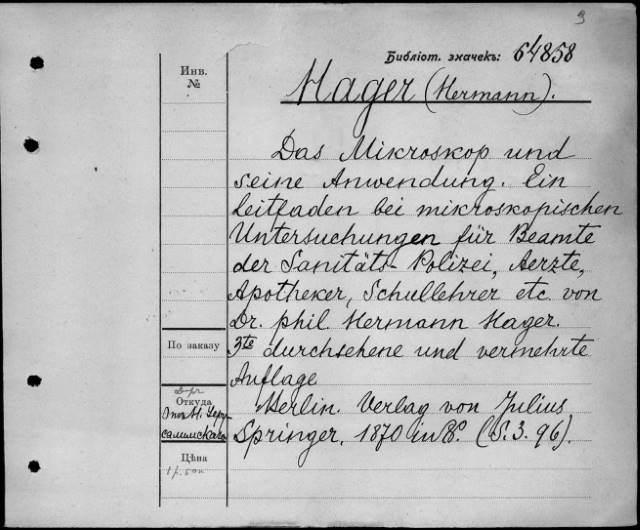 3
Библіот. значекъ: 64858
Инв.
№
Hager (Hermann).
Das Mikroskop und
seine Anwendung. Ein
Leitfaden bei mikroskopischen
Untersuchungen für Beamte
der Sanitäts-Polizei, Aerzte,
Apotheker, Schullehrer etc. von
Dr. phil. Hermann Hager.
3te durchsehene und vermehrte
Auflage
Berlin. Verlag von Julius
Springer. 1870 in 8º. (S. 3. 96).
По заказу
Откуда
Цѣна